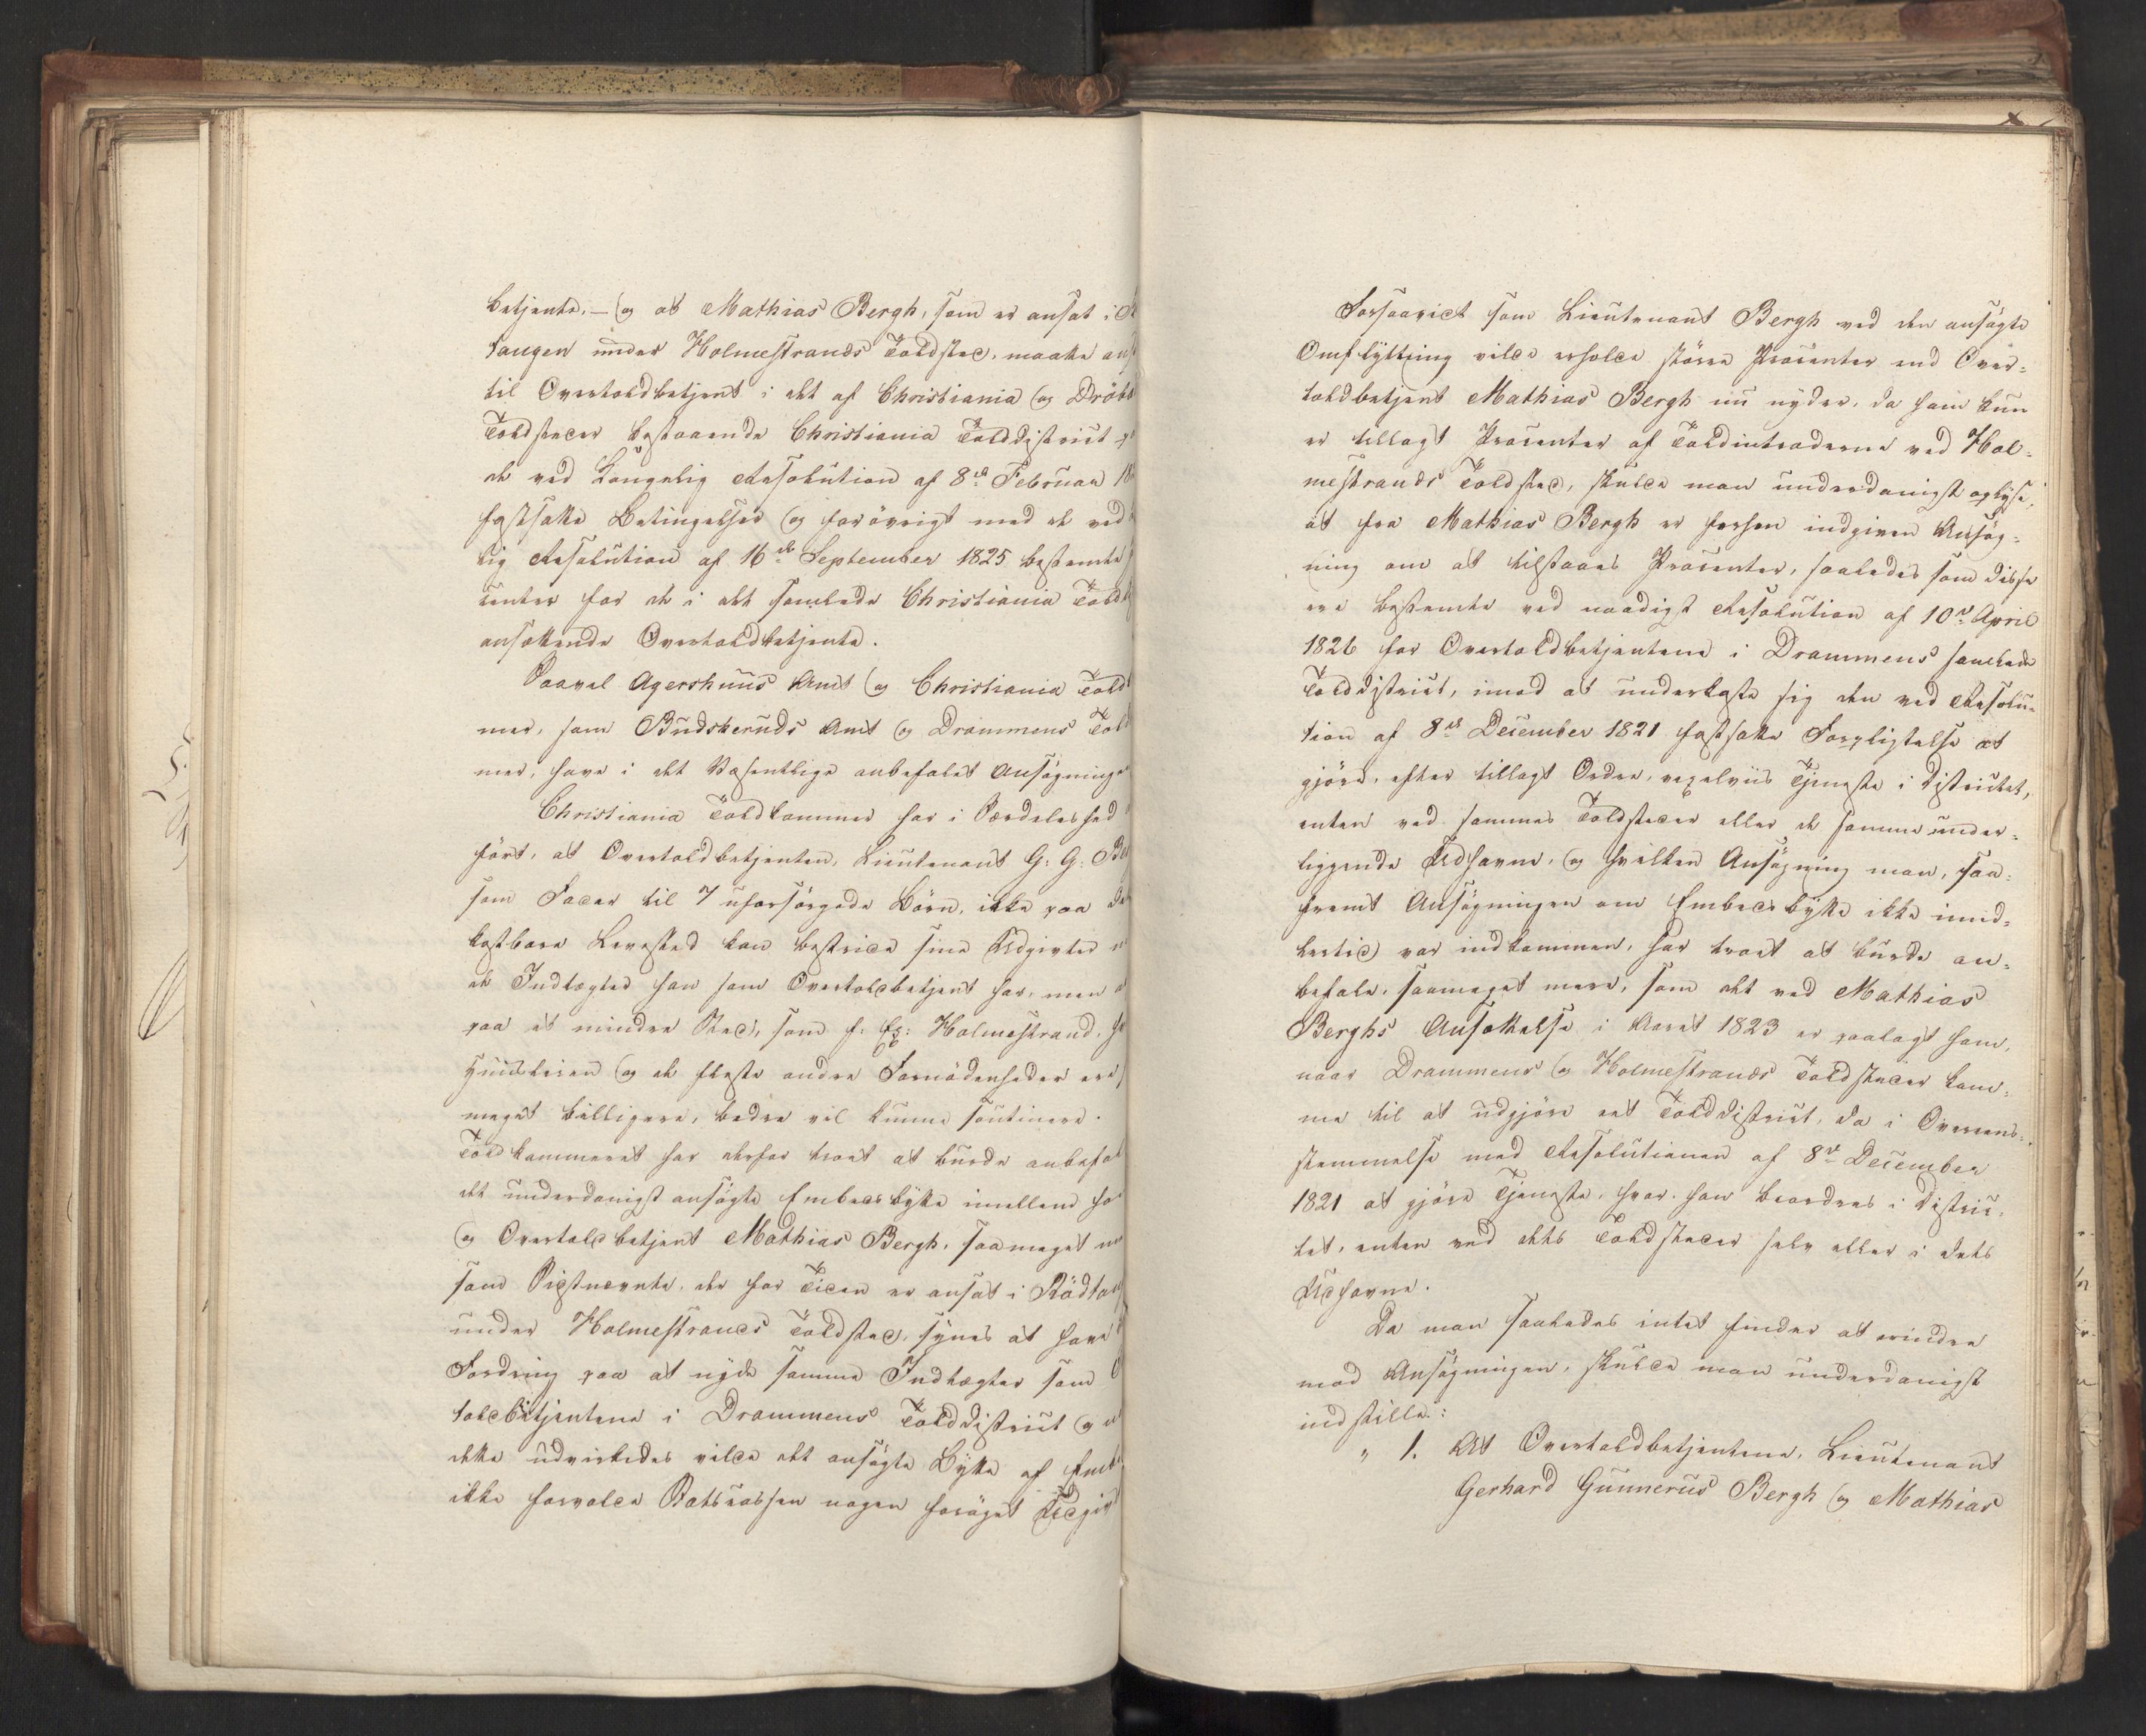 betjente, – og at Mathias Bergh, som er ansat i
tangen under Holmestrands Toldsted, maatte
til Overtoldbetjent i det af Christiania og Dröb
Toldsteder bestaaende Christiania Tolddistrict
de ved Kongelig Resolution af 8de Februar 18
fastsatte Betingelser og forövrigt med de ved
lig Resolution af 16de September 1825 bestemte
center for de i det samlede Christiania Told
ansættende Overtoldbetjente.
Saavel Agershuus Amt og Christiania Told
mer, som Budskeruds Amt og Drammens Told
mer, have i det Væsentlige anbefalet Ansögninge
Christiania Toldkammer har i Særdeleshed
fört, at Overtoldbetjenten, Lieutenant G: G: Be
som Fader til 7 uforsörgede Börn, ikke paa
kostbare Levested kan bestride sine Udgivter
de Indtægter han som Overtoldbetjent har, men
paa et mindre Sted, som f: Ex: Holmestrand,
Huusleien og de fleste andre Fornödenheder ere
meget billigere, bedre vil kunne soutinere.
Toldkammeret har derfor troet at burde anbefal
det underdanigst ansögte Embedsbytte imellem ha
og Overtoldbetjent Mathias Bergh, saameget
som Sidstnævnte, der for Tiden er ansat i Rödtan
under Holmestrands Toldsted, synes at have
Fordring paa at nyde samme Indtægter som
toldbetjentene i Drammens Tolddistrict og
dette udvirkedes vilde det ansögte Bytte af Emb
ikke forvolde Statscassen nogen foröget Udgivt
Forsaavidt som Lieutenant Bergh ved den ansögte
Omflyttning vilde erholde större Procenter end Over-
toldbetjent Mathias Bergh nu nyder, da ham kun
er tillagt Procenter af Toldintraderne ved Hol-
mestrands Toldsted, skulde man underdanigst oplyse,
at fra Mathias Bergh er forhen indgiven Ansög-
ning om at tilstaaes Procenter, saaledes som disse
ere bestemte ved naadigst Resolution af 10de April
1826 for Overtoldbetjentene i Drammens samlede
Tolddistrict, imod at underkaste sig den ved Resolu-
tion af 8de December 1821 fastsatte Forpligtelse at
gjöre, efter tillagt Ordre, vexelviis Tjeneste i Districtet,
enten ved sammes Toldsteder eller de samme under-
liggende Udhavne, og hvilken Ansögning man, saa-
fremt Ansögningen om Embedsbytte ikke imid-
lertid var indkommen, har troet at burde an-
befale, saameget mere, som det ved Mathias
Berghs Ansættelse i Aaret 1823 er paalagt ham,
naar Drammens og Holmestrands Toldsteder kom-
me til at udgjöre eet Tolddistrict, da i Overens-
stemmelse med Resolutionen af 8de December
1821 at gjöre Tjeneste, hvor han beordres i Distric-
tet, enten ved dets Toldsteder selv eller i dets
Udhavne.
Da man saaledes intet finder at erindre
mod Ansögningen, skulde man underdanigst
indstille:
„ 1. At Overtoldbetjentene, Lieutenant
Gerhard Gunnerus Bergh og Mathias